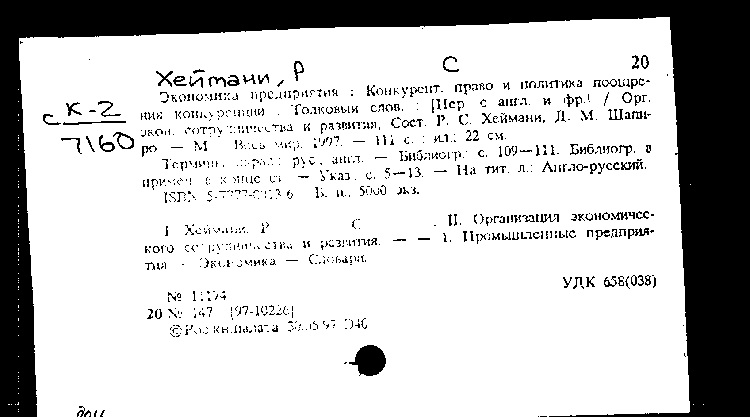 Хеймани, Р С 20
Экономика предприятия : Конкурент. право и политика поощре-
с К-2 ния конкуренции : Толковый слов. : [Пер. с англ. и фр.] / Орг.
7160 экон. сотрудничества и развития, Сост. Р. С. Хеймани, Д. М. Шапи-
ро. — М. Весь мир, 1997. — 111 с. : ил.; 22 см.
Термины парал. рус., англ. — Библиогр.: с. 109—111. Библиогр. в
примеч. в конце ст. — Указ.: с. 5—13. — На тит. л.: Англо-русский.
ISBN Б. ц., 5000 экз.
I. Хеймани, Р С . II. Организация экономичес-
кого сотрудничества и развития. — — 1. Промышленные предприя-
тия - Экономика — Словари.
УДК 658(038)
№ 11194
20 № 147 [97-10226]
© Рос. кн. палата